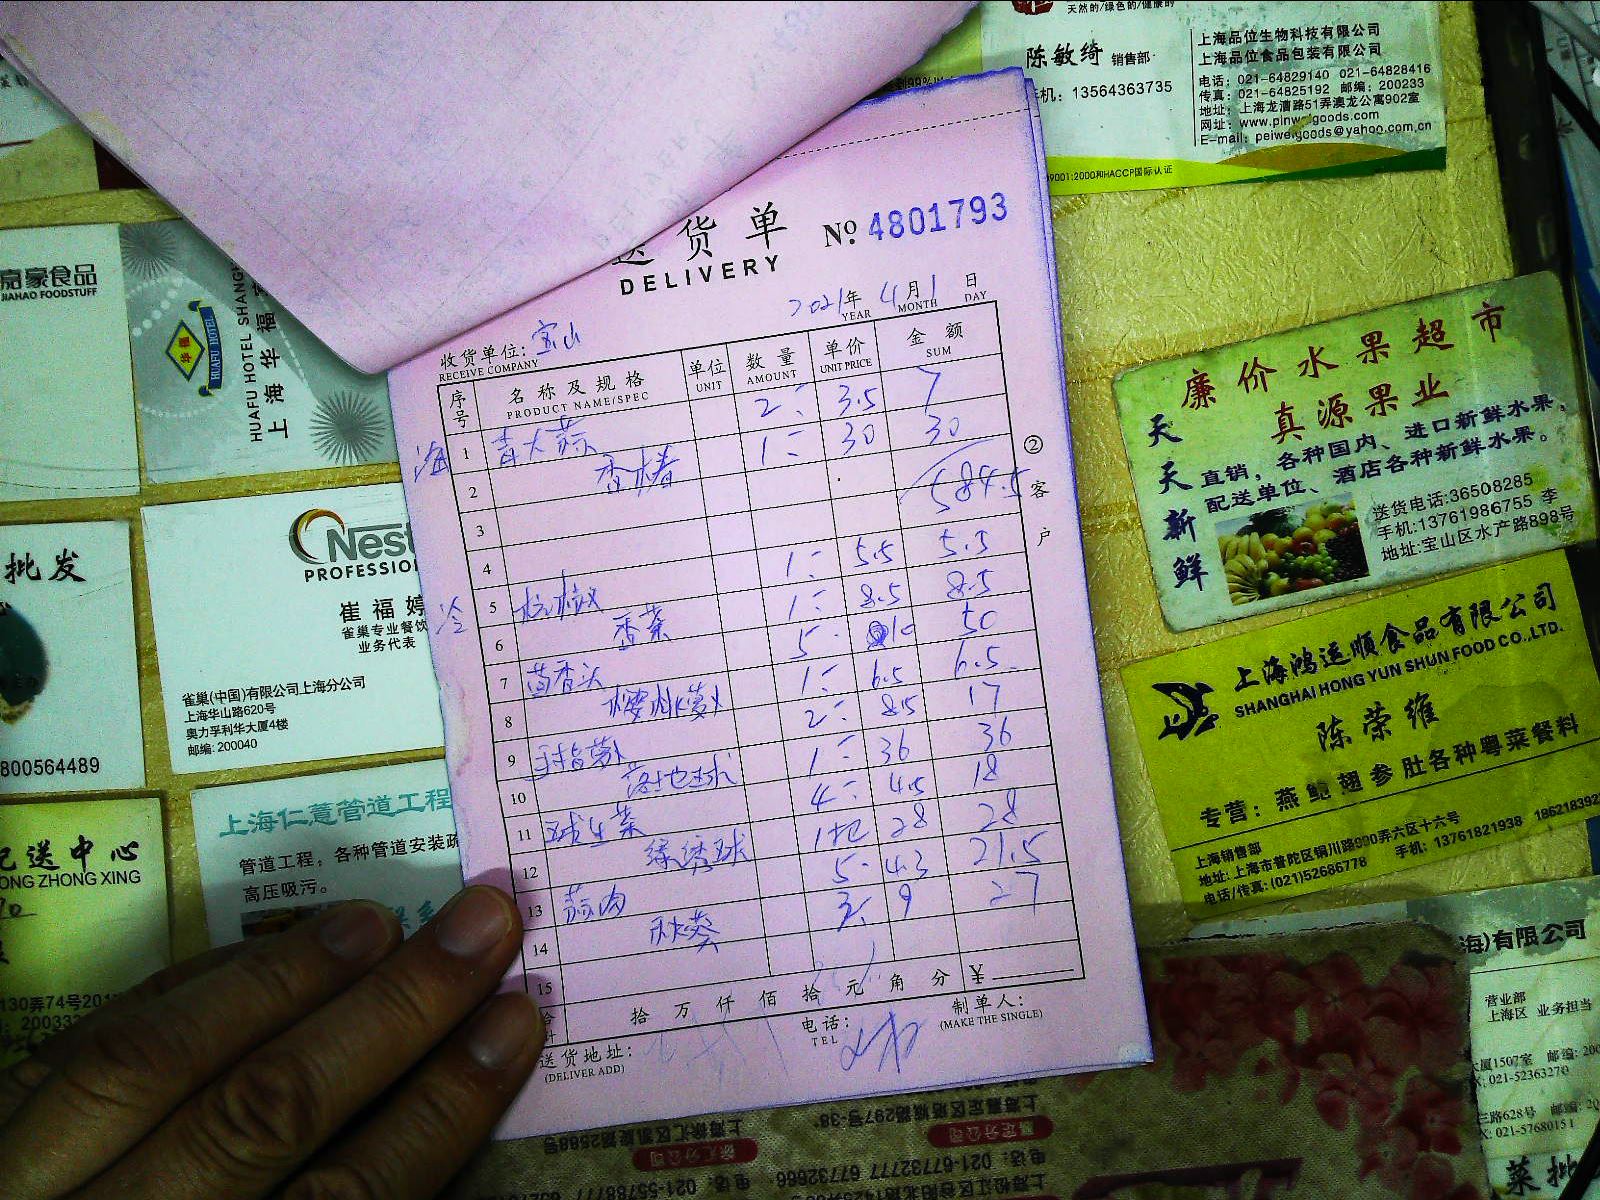 送货单
DELIVERY
No. 4801793
2021年 4月 1日
YEAR MONTH DAY
收货单位: 宝山
RECEIVE COMPANY
序号 名称及规格 单位 数量 单价 金额
PRODUCT NAME/SPEC UNIT AMOUNT UNIT PRICE SUM
海 1 青大蒜 2 3.5 7
2 香椿 1 30 30
3 584.5
4
冷 5 杭椒 1 5.5 5.5
6 香菜 1 8.5 8.5
7 茴香头 5 10 50
8 樱桃萝卜 1 6.5 6.5
9 手指萝卜 2 8.5 17
10 1 36 36
11 球生菜 4 4.5 18
12 绿绣球 28 28
13 蒜肉 5 4.3 21.5
14 秋葵 3 9 27
15
合计 拾万仟佰拾元角分 ¥
② 客户
送货地址:
(DELIVER ADD)
电话:
TEL
制单人:
(MAKE THE SINGLE)
天然的/绿色的/健康的
陈敏绮 销售部
手机: 13564363735
上海品位生物科技有限公司
上海品位食品包装有限公司
电话: 021-64829140 021-64828416
传真: 021-64825192 邮编: 200233
地址: 上海龙漕路51弄澳龙公寓902室
网址: www.pinweigoods.com
E-mail: peiweigoods@yahoo.com.cn
9001:2000和HACCP国际认证
嘉豪食品
JIAHAO FOODSTUFF
华福
HUAFU HOTEL
HUAFU HOTEL SHANGH
上海华福
批发
800564489
Nest
PROFESSION
崔福婷
雀巢专业餐饮
业务代表
雀巢(中国)有限公司上海分公司
上海华山路620号
奥力孚利华大厦4楼
邮编: 200040
上海仁薏管道工程
管道工程, 各种管道安装疏
高压吸污。
配送中心
ONG ZHONG XING
130弄74号201
: 200332
廉价水果超市
真源果业
天天新鲜
直销, 各种国内、进口新鲜水果,
配送单位、酒店各种新鲜水果。
送货电话:36508285
手机:13761986755 李
地址:宝山区水产路898号
上海鸿运顺食品有限公司
SHANGHAI HONG YUN SHUN FOOD CO.,LTD.
陈荣维
专营: 燕鲍翅参肚各种粤菜餐料
上海销售部
地址: 上海市普陀区铜川路990弄六区十六号
电话/传真: (021)52686778 手机: 13761821938 1862183923
海)有限公司
营业部
上海区 业务担当
大厦1507室 邮编: 200
X: 021-52363270
三路628号 邮编: 20
X: 021-57680151
菜批
嘉定分公司
徐汇分公司
电话: 021-67732777 67732666
021-55788777